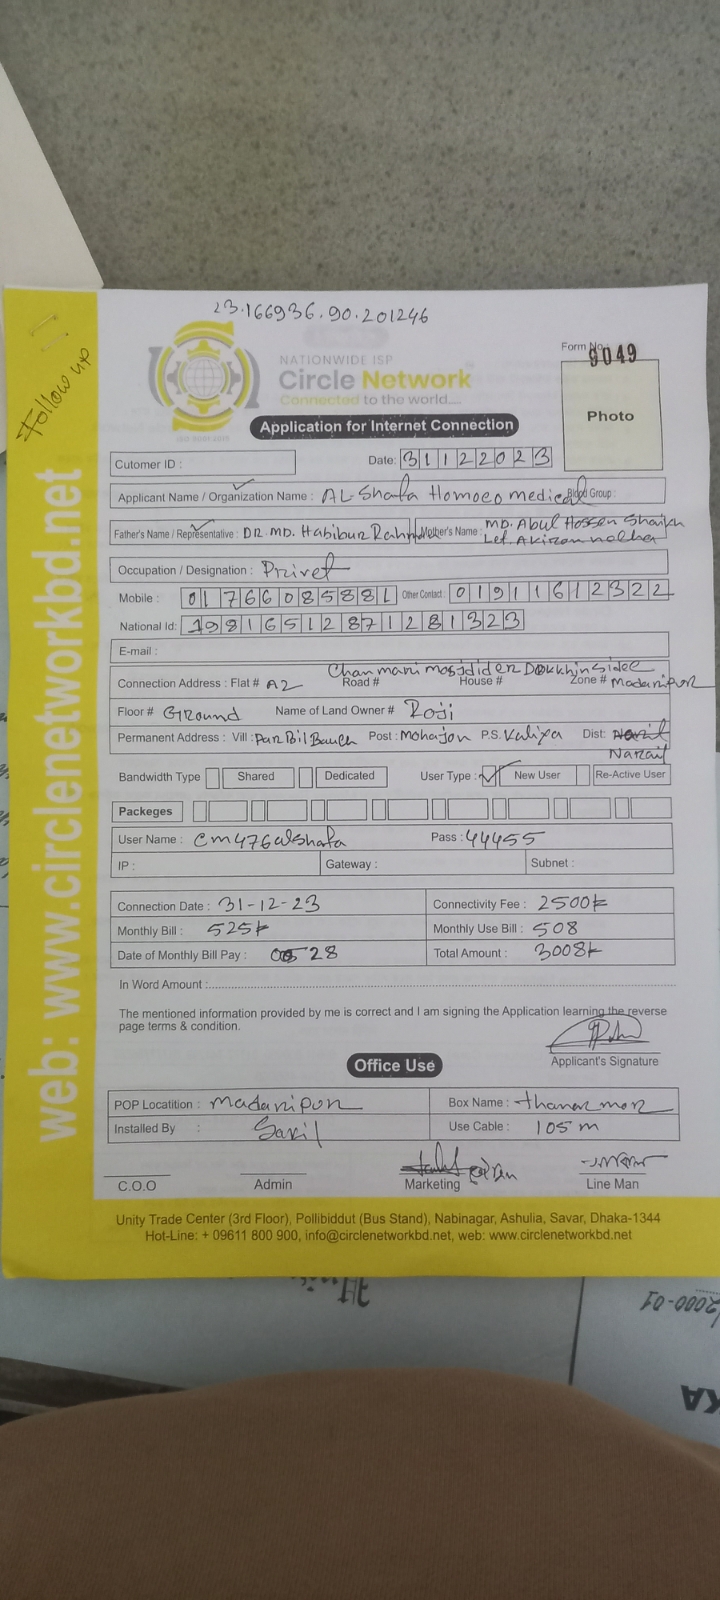 23.166936.90.201246
Follow up
Form No.: 9049
NATIONWIDE ISP
Circle Network
Connected to the world....
ISO 9001:2015
Photo
Application for Internet Connection
Cutomer ID :
Date: 31122023
Applicant Name / Organization Name : AL-Shafa Homoeo medical Blood Group :
Father's Name / Representative : DR. MD. Habibur Rahman Mother's Name : MD. Abul Hossen Shaikh
Occupation / Designation : Privet
Mobile : 01766085881 Other Contact : 01911612322
National Id: 19816512871281323
E-mail :
Chanmari mosjdider Dokkhin Side
Connection Address : Flat # A2 Road # House # Zone # Madaripur
Floor # Ground Name of Land Owner # Roji
Permanent Address : Vill : Par Bil Bauch Post : Mohajon P.S. Kaliya Dist:
Narail
Bandwidth Type Shared Dedicated User Type : New User Re-Active User
Packeges
User Name : cm476alshafa Pass : 44455
IP : Gateway : Subnet :
Connection Date : 31-12-23 Connectivity Fee : 2500
Monthly Bill : 525 Monthly Use Bill : 508
Date of Monthly Bill Pay : 28 Total Amount : 3008
In Word Amount :
The mentioned information provided by me is correct and I am signing the Application learning the reverse
page terms & condition.
Applicant's Signature
Office Use
POP Locatition : Madaripur Box Name : thanar mor
Installed By : Use Cable : 105 m
C.O.O Admin Marketing Line Man
Unity Trade Center (3rd Floor), Pollibiddut (Bus Stand), Nabinagar, Ashulia, Savar, Dhaka-1344
Hot-Line: + 09611 800 900, info@circlenetworkbd.net, web: www.circlenetworkbd.net
web: www.circlenetworkbd.net